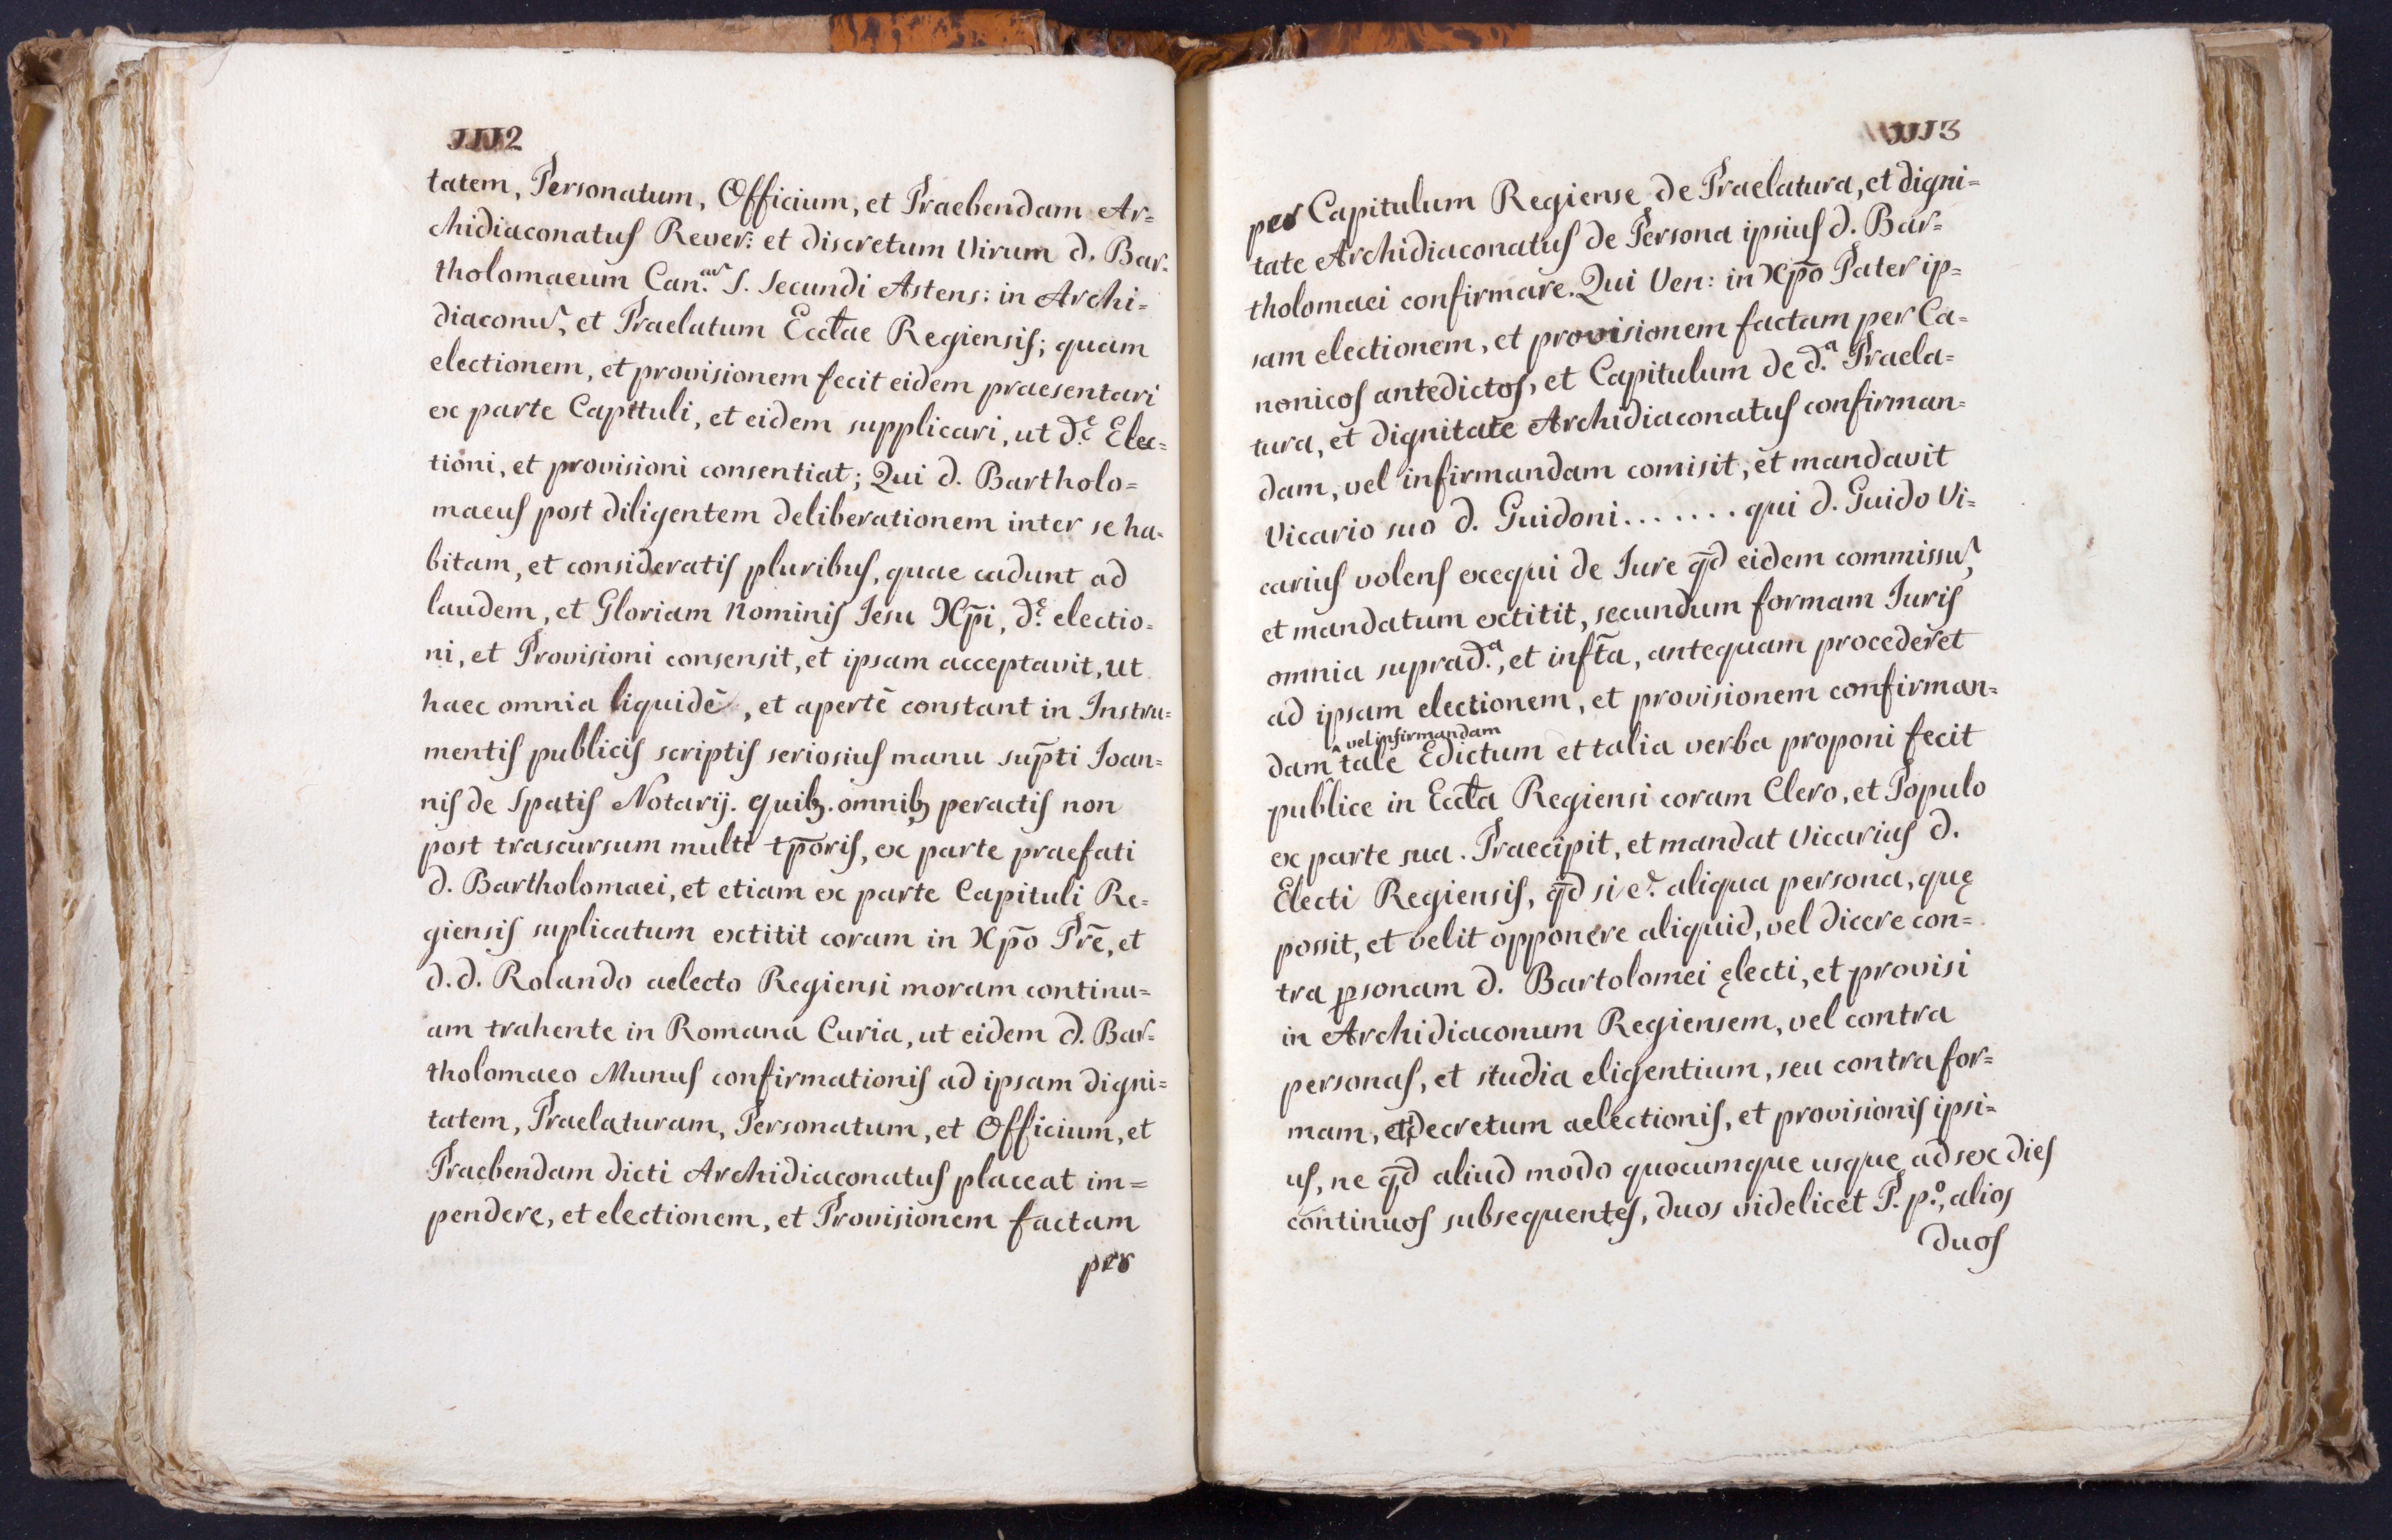 1112
tatem, Personatum, Officium, et Praebendam Ar=
chidiaconatus Rever: et discretum Virum d. Bar=
tholomaeum Can. S. Secundi Astens: in Archi=
diaconũ, et Praelatum Eccłae Regiensis; quam
electionem, et provisionem fecit eidem praesentari
ex parte Capituli, et eidem supplicari, ut d.ᵉ Elec=
tioni, et provisioni consentiat; Qui d. Bartholo=
maeus post diligentem deliberationem inter se ha=
bitam, et consideratis pluribus, quae cadunt ad
laudem, et Gloriam Nominis Iesu Xp̄i, d.ᵉ electio=
ni, et Provisioni consensit, et ipsam acceptavit, ut
haec omnia liquidè, et apertè constant in Instru=
mentis publicis scriptis seriosius manu sup̄ti Ioan=
nis de Spatis Notarij. quib3. omnib3 peractis non
post trascursum multi tp̄oris, ex parte praefati
d. Bartholomaei, et etiam ex parte Capituli Re=
giensis suplicatum extitit coram in Xp̄o Pr̄e, et
d. d. Rolando aelecto Regiensi moram continu=
am trahente in Romana Curia, ut eidem d. Bar=
tholomaeo Munus confirmationis ad ipsam digni=
tatem, Praelaturam, Personatum, et Officium, et
Praebendam dicti Archidiaconatus placeat im=
pendere, et electionem, et Provisionem factam
per
1113
per Capitulum Regiense de Praelatura, et digni=
tate Archidiaconatus de Persona ipsius d. Bar=
tholomaei confirmare. Qui Ven: in Xp̄o Pater ip=
sam electionem, et provisionem factam per Ca=
nonicos antedictos, et Capitulum de d.ᵃ Praela=
tura, et dignitate Archidiaconatus confirman=
dam, vel infirmandam comisit, et mandavit
Vicario suo d. Guidoni....... qui d. Guido Vi=
carius volens exequi de Iure q̄d eidem commissũ,
et mandatum extitit, secundum formam Iuris
omnia suprad.ᵃ, et infr̄a, antequam procederet
ad ipsam electionem, et provisionem confirman=
^ vel infirmandam
dam tale Edictum et talia verba proponi fecit
publice in Eccła Regiensi coram Clero, et Populo
ex parte sua. Praecipit, et mandat Vicarius d.
Electi Regiensis, q̄d si e. aliqua persona, quę
possit, et velit opponere aliquid, vel dicere con=
tra ꝑsonam d. Bartolomei ęlecti, et provisi
in Archidiaconum Regiensem, vel contra
personas, et studia eligentium, seu contra for=
mam, et decretum aelectionis, et provisionis ipsi=
us, ne q̄d aliud modo quocumque usque ad sex dies
continuos subsequentes, duos videlicet P. p.º, alios
duos